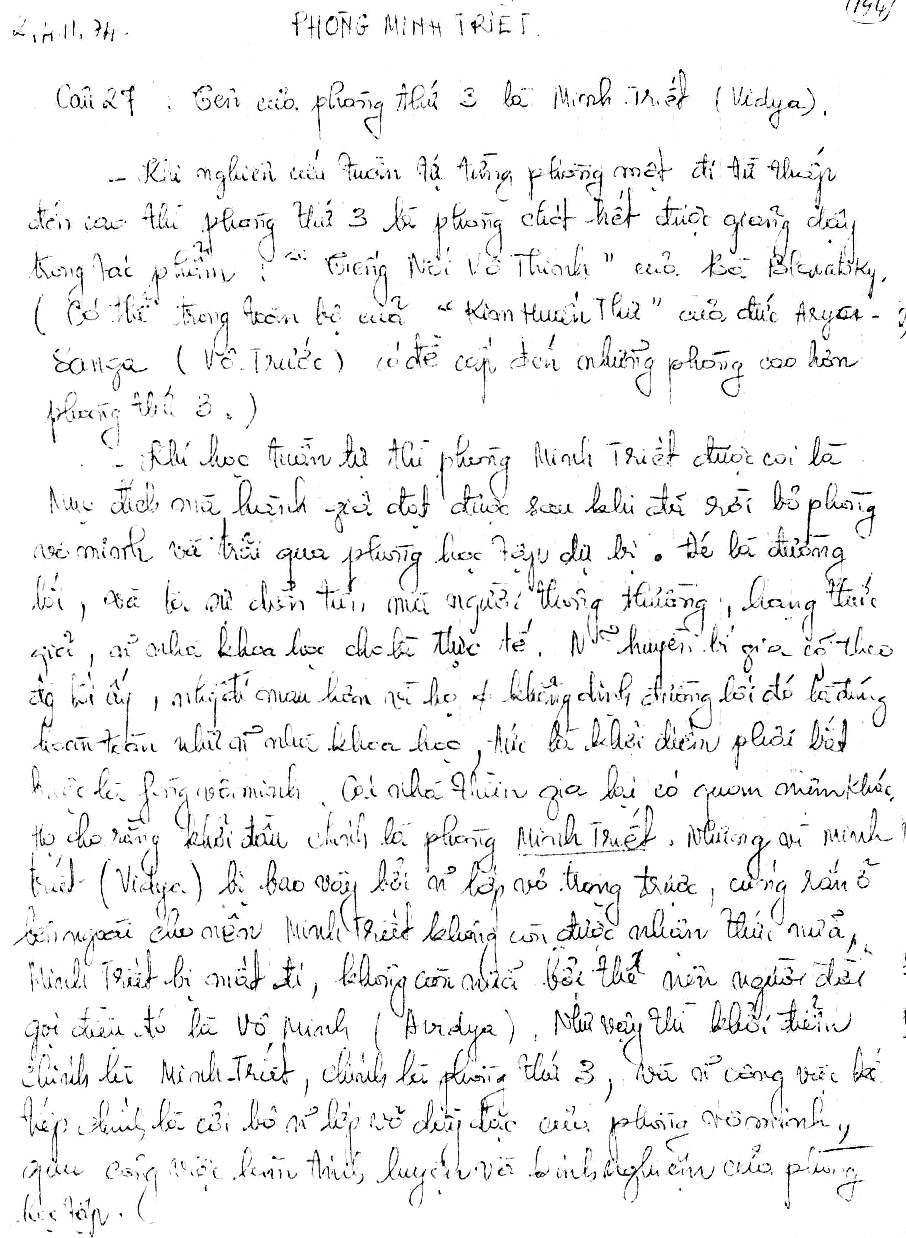 (194)
2.4.11.74. PHÒNG MINH TRIẾT.
Câu 27 : Tên của phòng thứ 3 là Minh Triết (Vidya).
- Khi nghiên cứu tuần tự từng phòng một đi từ thấp
đến cao thì phòng thứ 3 là phòng chót hết được giảng dạy
trong tác phẩm : "Tiếng Nói Vô Thinh" của Bà Blavatsky.
( Có thể trong toàn bộ của "Kim Huấn Thư" của đức Arya-
Sanga ( Vô Trước ) có đề cập đến những phòng cao hơn
phòng thứ 3. )
- Khi học tuần tự thì phòng Minh Triết được coi là
Mục đích mà hành giả đạt được sau khi đã rời bỏ phòng
vô minh và trải qua phòng học tập dự bị. Đó là đường
lối, và là sự diễn tiến mà người thông thường, hạng thức
giả, n nhà khoa học cho là thực tế. N huyền bí gia cổ theo
lối ấy, nhưng đi mau hơn và họ khẳng định đường lối đó là đúng
hoàn toàn như n nhà khoa học, tức là khởi điểm phải bắt
buộc là phòng vô minh. Cái nhà thiền gia lại có quan niệm khác,
họ cho rằng khởi đầu chính là phòng Minh Triết. Nhưng vì minh
triết (Vidya) bị bao vây bởi n lớp vỏ trọng trược, cứng rắn ở
bên ngoài cho nên Minh Triết không còn được nhận thức nữa,
Minh Triết bị mất đi, không còn nữa bởi thế nên người đời
gọi điều đó là Vô Minh (Avidya). Như vậy thì khởi điểm
chính là Minh-Triết, chính là phòng thứ 3, và n công việc kế
tiếp chính là cởi bỏ n lớp vỏ dầy đặc của phòng vô minh,
qua công việc làm tinh luyện và kinh nghiệm của phòng
học tập.